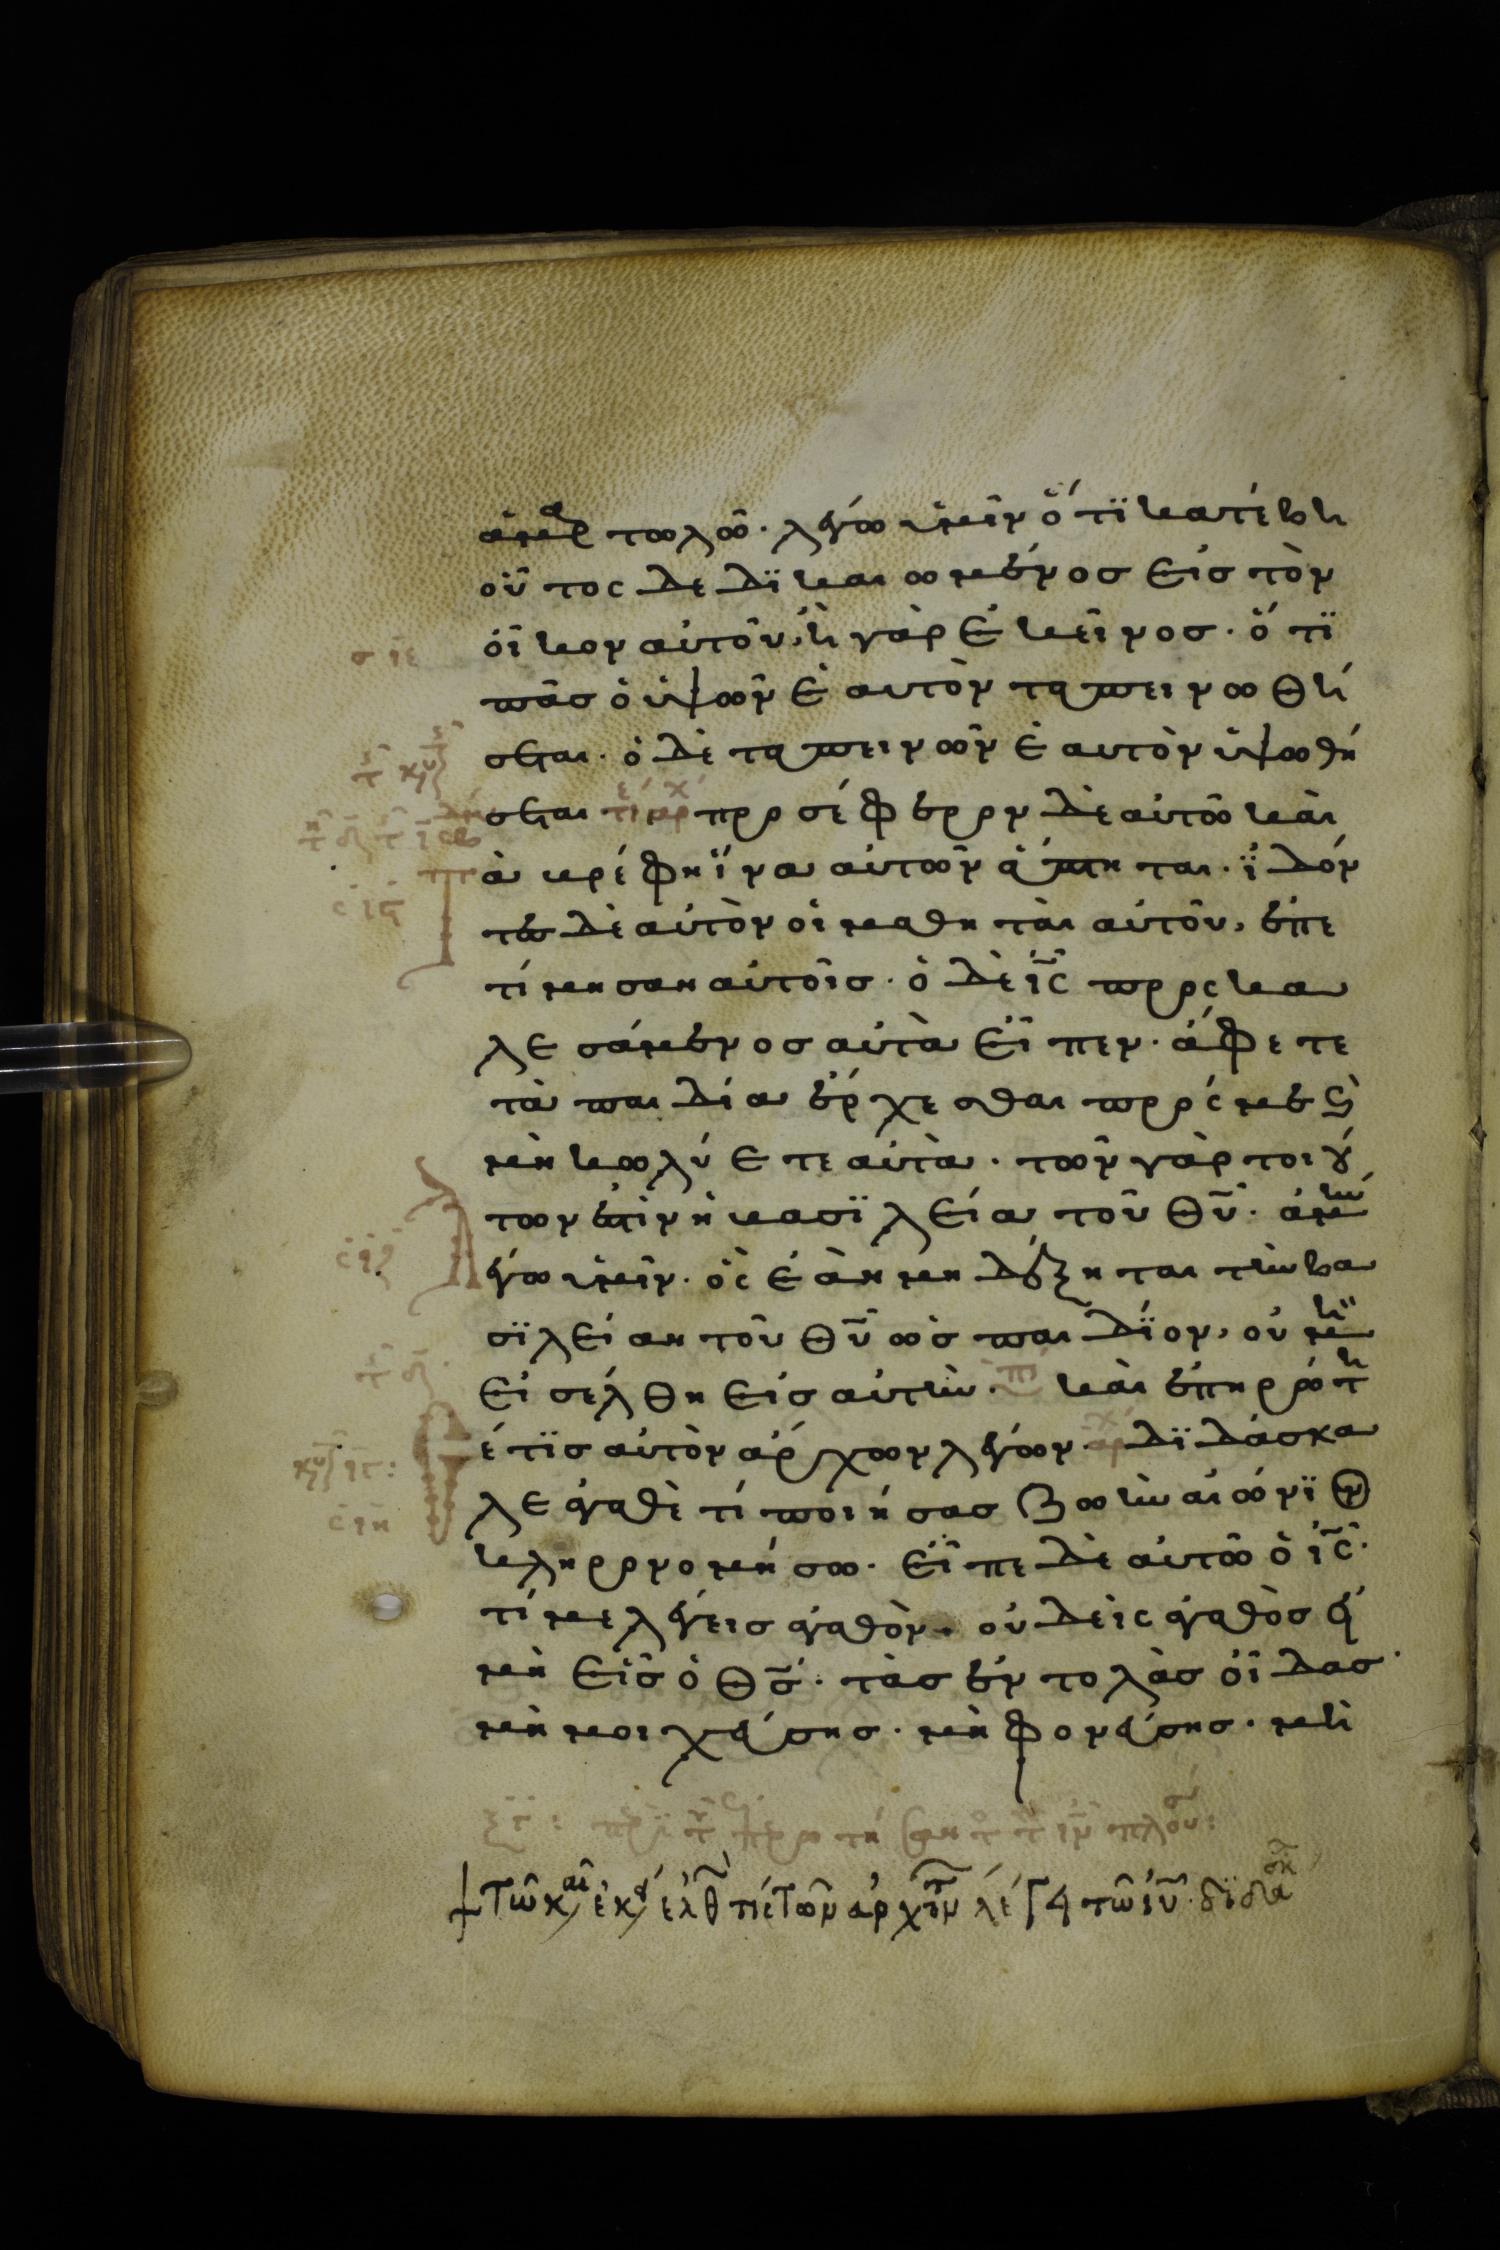 ἁμαρτωλῶ· λέγω ὑμῖν ὅτϊ κατέβη
οὗτος δεδϊκαιωμένος εἰς τὸν
οἶκον αὐτοῦ, ἢ γὰρ ἐκεῖνος· ὅτϊ
πᾶς ὁ ὑψῶν ἑαυτὸν ταπεινωθή
σεται· ὁ δὲ ταπεινῶν ἑαυτὸν ὑψωθή
σεται προσέφερον δὲ αὐτῶ καὶ
τὰ βρέφη ἵνα αὐτῶν ἅπτηται· ἰδόν
τες δὲ αὐτὸν οἱ μαθηταὶ αὐτοῦ, ἐπε
τίμησαν αὐτοῖς· ὁ δὲ ις προσκα
λεσάμενος αὐτὰ εἶπεν· ἄφετε
τὰ παιδία ἔρχεσθαι πρός με ϗ
μὴ κωλύετε αὐτὰ· τῶν γὰρ τοιού
των ἐστὶν ἡ βασϊλεία τοῦ θυ· ἀμὴν
λέγω ὑμῖν· ὃς ἐὰν μὴ δέξηται τὴν βα
σϊλείαν τοῦ θυ ὡς παιδϊον, οὐ μὴ
εἰσέλθη εἰς αὐτήν· καὶ ἐπηρώτη
σέ τϊς αὐτὸν ἄρχων λέγων· δϊδάσκα
λε ἀγαθὲ τί ποιήσας ζωὴν αἰώνϊον
κληρονομήσω· εἶπε δὲ αὐτῶ ὁ ις·
τί με λέγεις ἀγαθὸν· οὐδεὶς ἀγαθὸς εἰ
μὴ εἷς ὁ θς· τὰς ἐντολὰς οἶδας·
μὴ μοιχεύσης· μὴ φονεύσης· μὴ